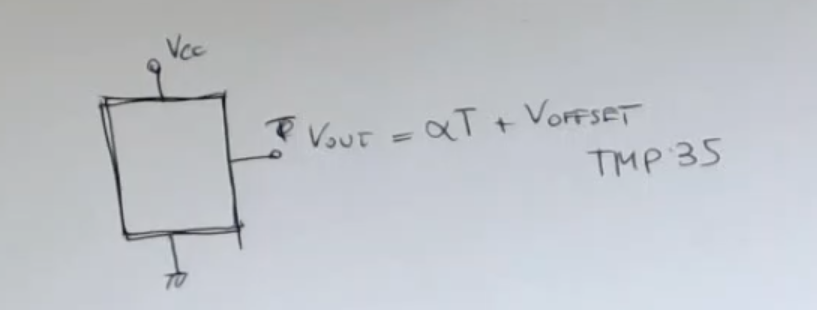 Vcc
VOUT = αT + VOFFSET
TMP35